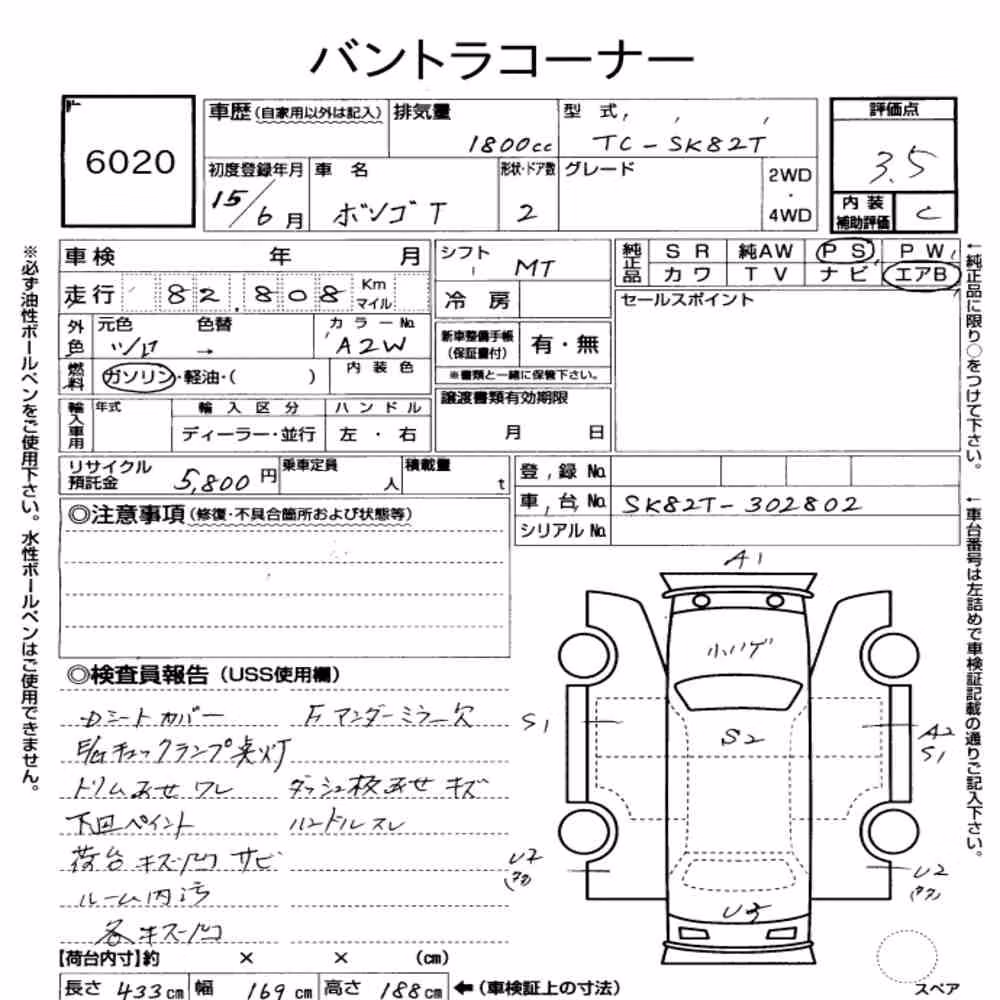 バントラコーナー
6020
車歴(自家用以外は記入) 排気量 1800cc 型式 TC-SK82T
評価点 3.5
初度登録年月 15/6月 車名 ボンゴT 形状・ドア数 2 グレード 2WD・4WD
内装補助評価 C
車検 年 月
シフト MT
純正品 SR 純AW PS PW
カワ TV ナビ エアB
走行 82.808 Km マイル
冷房
セールスポイント
外色 元色 シロ 色替 → カラーNo. A2W
新車整備手帳(保証書付) 有・無
※書類と一緒に保管下さい。
燃料 ガソリン・軽油・( ) 内装色
譲渡書類有効期限
月 日
輸入車用 年式 輸入区分 ハンドル
ディーラー・並行 左・右
リサイクル預託金 5,800円 乗車定員 人 積載量 t
登録No.
車台No. SK82T-302802
シリアルNo.
◎注意事項(修復・不具合箇所および状態等)
◎検査員報告(USS使用欄)
Dシートカバー Fアンダーミラー欠
E/gチェックランプ点灯
トリムあせワレ ダッシュ板あせキズ
下回ペイント ハンドルスレ
荷台キズ凹サビ
ルーム内汚
各キズ凹
A1
小ハゲ
S1
S2
A2
S1
U2
U2
U3
スペア
【荷台内寸】約 × × (cm)
長さ 433cm 幅 169cm 高さ 188cm ←(車検証上の寸法)
※必ず油性ボールペンをご使用下さい。水性ボールペンはご使用できません。
←純正品に限り○をつけて下さい。
←車台番号は左詰めで車検証記載の通りご記入下さい。